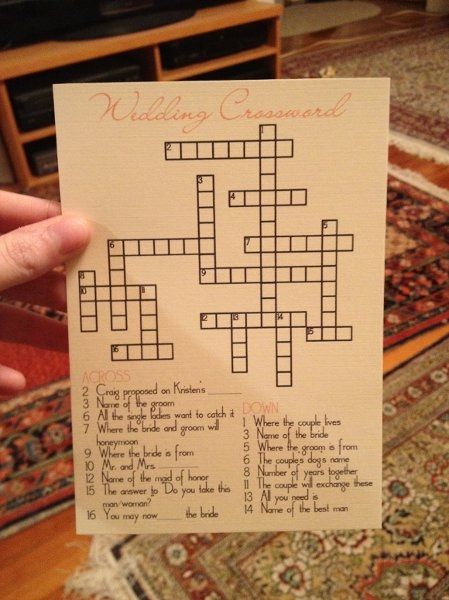 Wedding Crossword
1
2
3
4
5
6
7
8
9
10 11
12 13 14
15
16
ACROSS
2 Craig proposed on Kristen's ______
3 Name of the groom
6 All the single ladies want to catch it
7 Where the bride and groom will
honeymoon
9 Where the bride is from
10 Mr. and Mrs. ______
12 Name of the maid of honor
15 The answer to 'Do you take this
man/woman?'
16 You may now ______ the bride
DOWN
1 Where the couple lives
3 Name of the bride
5 Where the groom is from
6 The couple's dog's name
8 Number of years together
11 The couple will exchange these
13 All you need is
14 Name of the best man